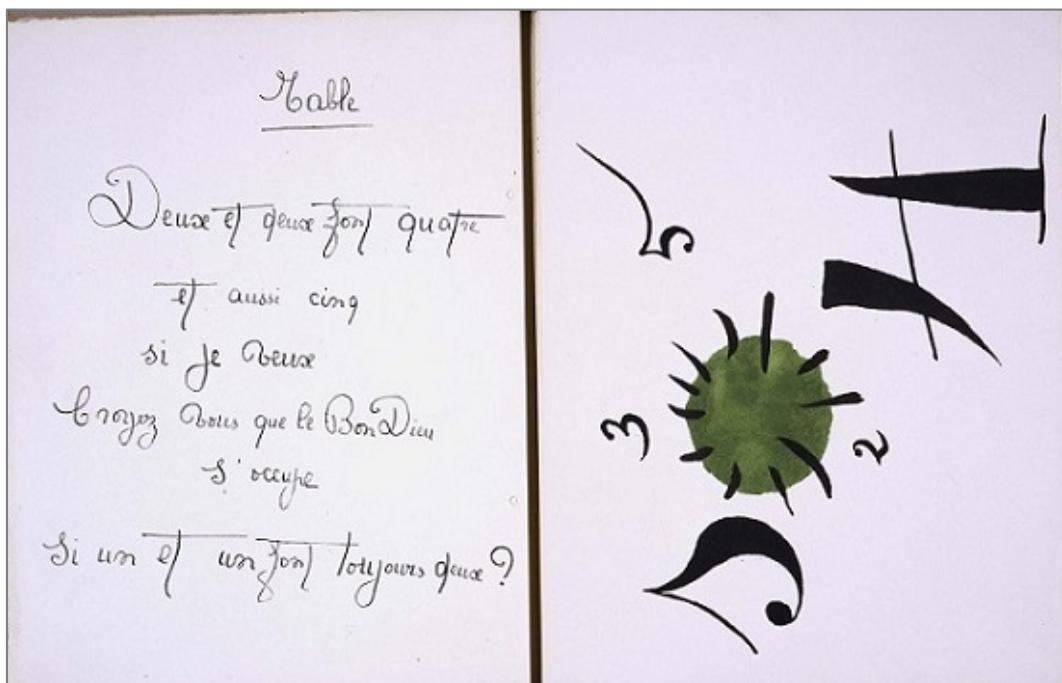 Table
Deux et deux font quatre
et aussi cinq
si je veux
Croyez vous que le Bon Dieu
s'occupe
si un et un font toujours deux ?
5
4
3
2
2